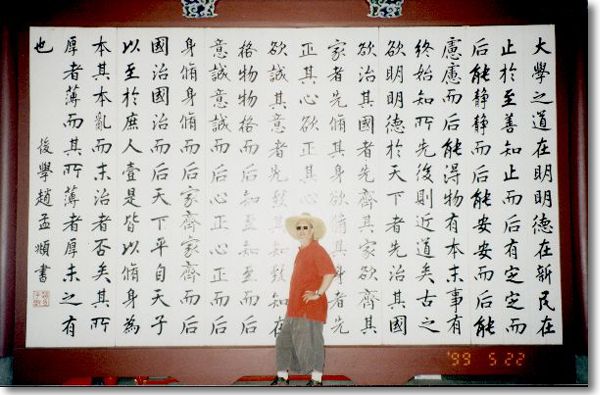 大學之道在明明德在新民在
止於至善知止而后有定定而
后能静静而后能安安而后能
慮慮而后能得物有本末事有
終始知所先後則近道矣古之
欲明明德於天下者先治其國
欲治其國者先齊其家欲齊其
家者先脩其身欲脩其身者先
正其心欲正其心
欲誠其意者先致其知致知在
格物物格而后知至知至而后
意誠意誠而后心正心正而后
身脩身脩而后家齊家齊而后
國治國治而后天下平自天子
以至於庶人壹是皆以脩身為
本其本亂而末治者否矣其所
厚者薄而其所薄者厚未之有
也
後學趙孟頫書
'99 5 22